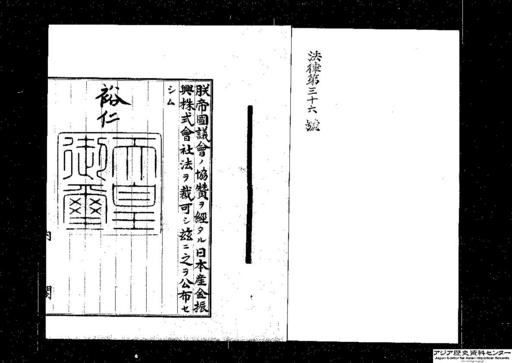 法律第三十六號
朕帝國議會ノ協贊ヲ經タル日本產金振
興株式會社法ヲ裁可シ茲ニ之ヲ公布セ
シム
裕仁
天皇
御璽
内閣
アジア歴史資料センター
Japan Center for Asian Historical Records